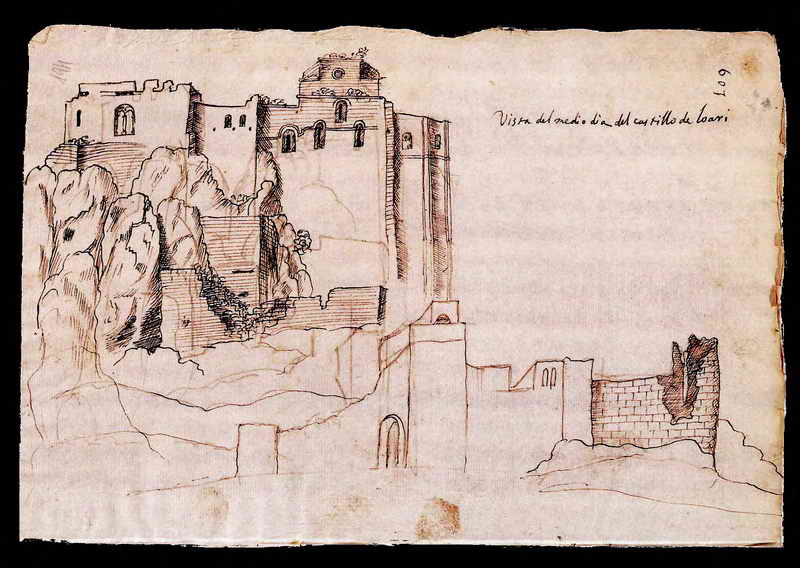 Vista del medio dia del castillo de loari
607